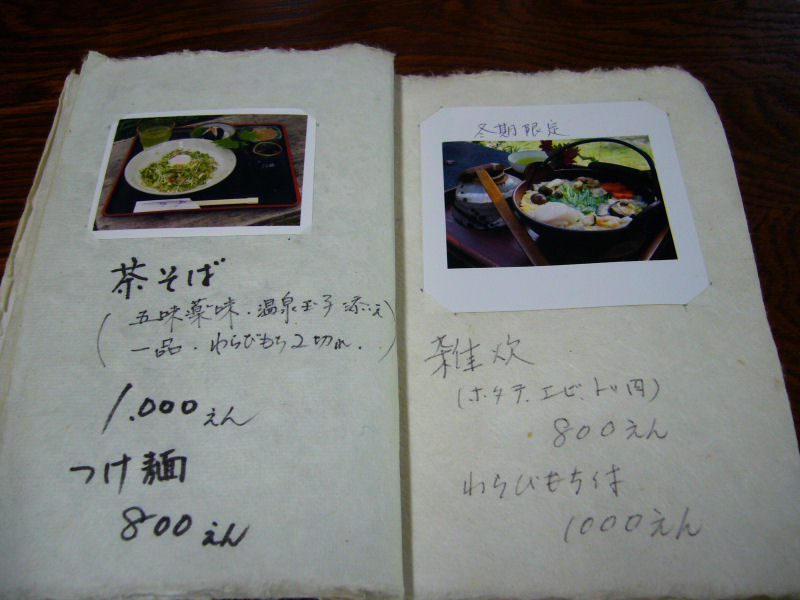 茶そば
(五味薬味・温泉玉子添え
一品・わらびもち2切れ.)
1.000えん
つけ麺
800えん
冬期限定
雑炊
(ホタテ.エビ.トリ肉)
800えん
わらびもち付
1000えん